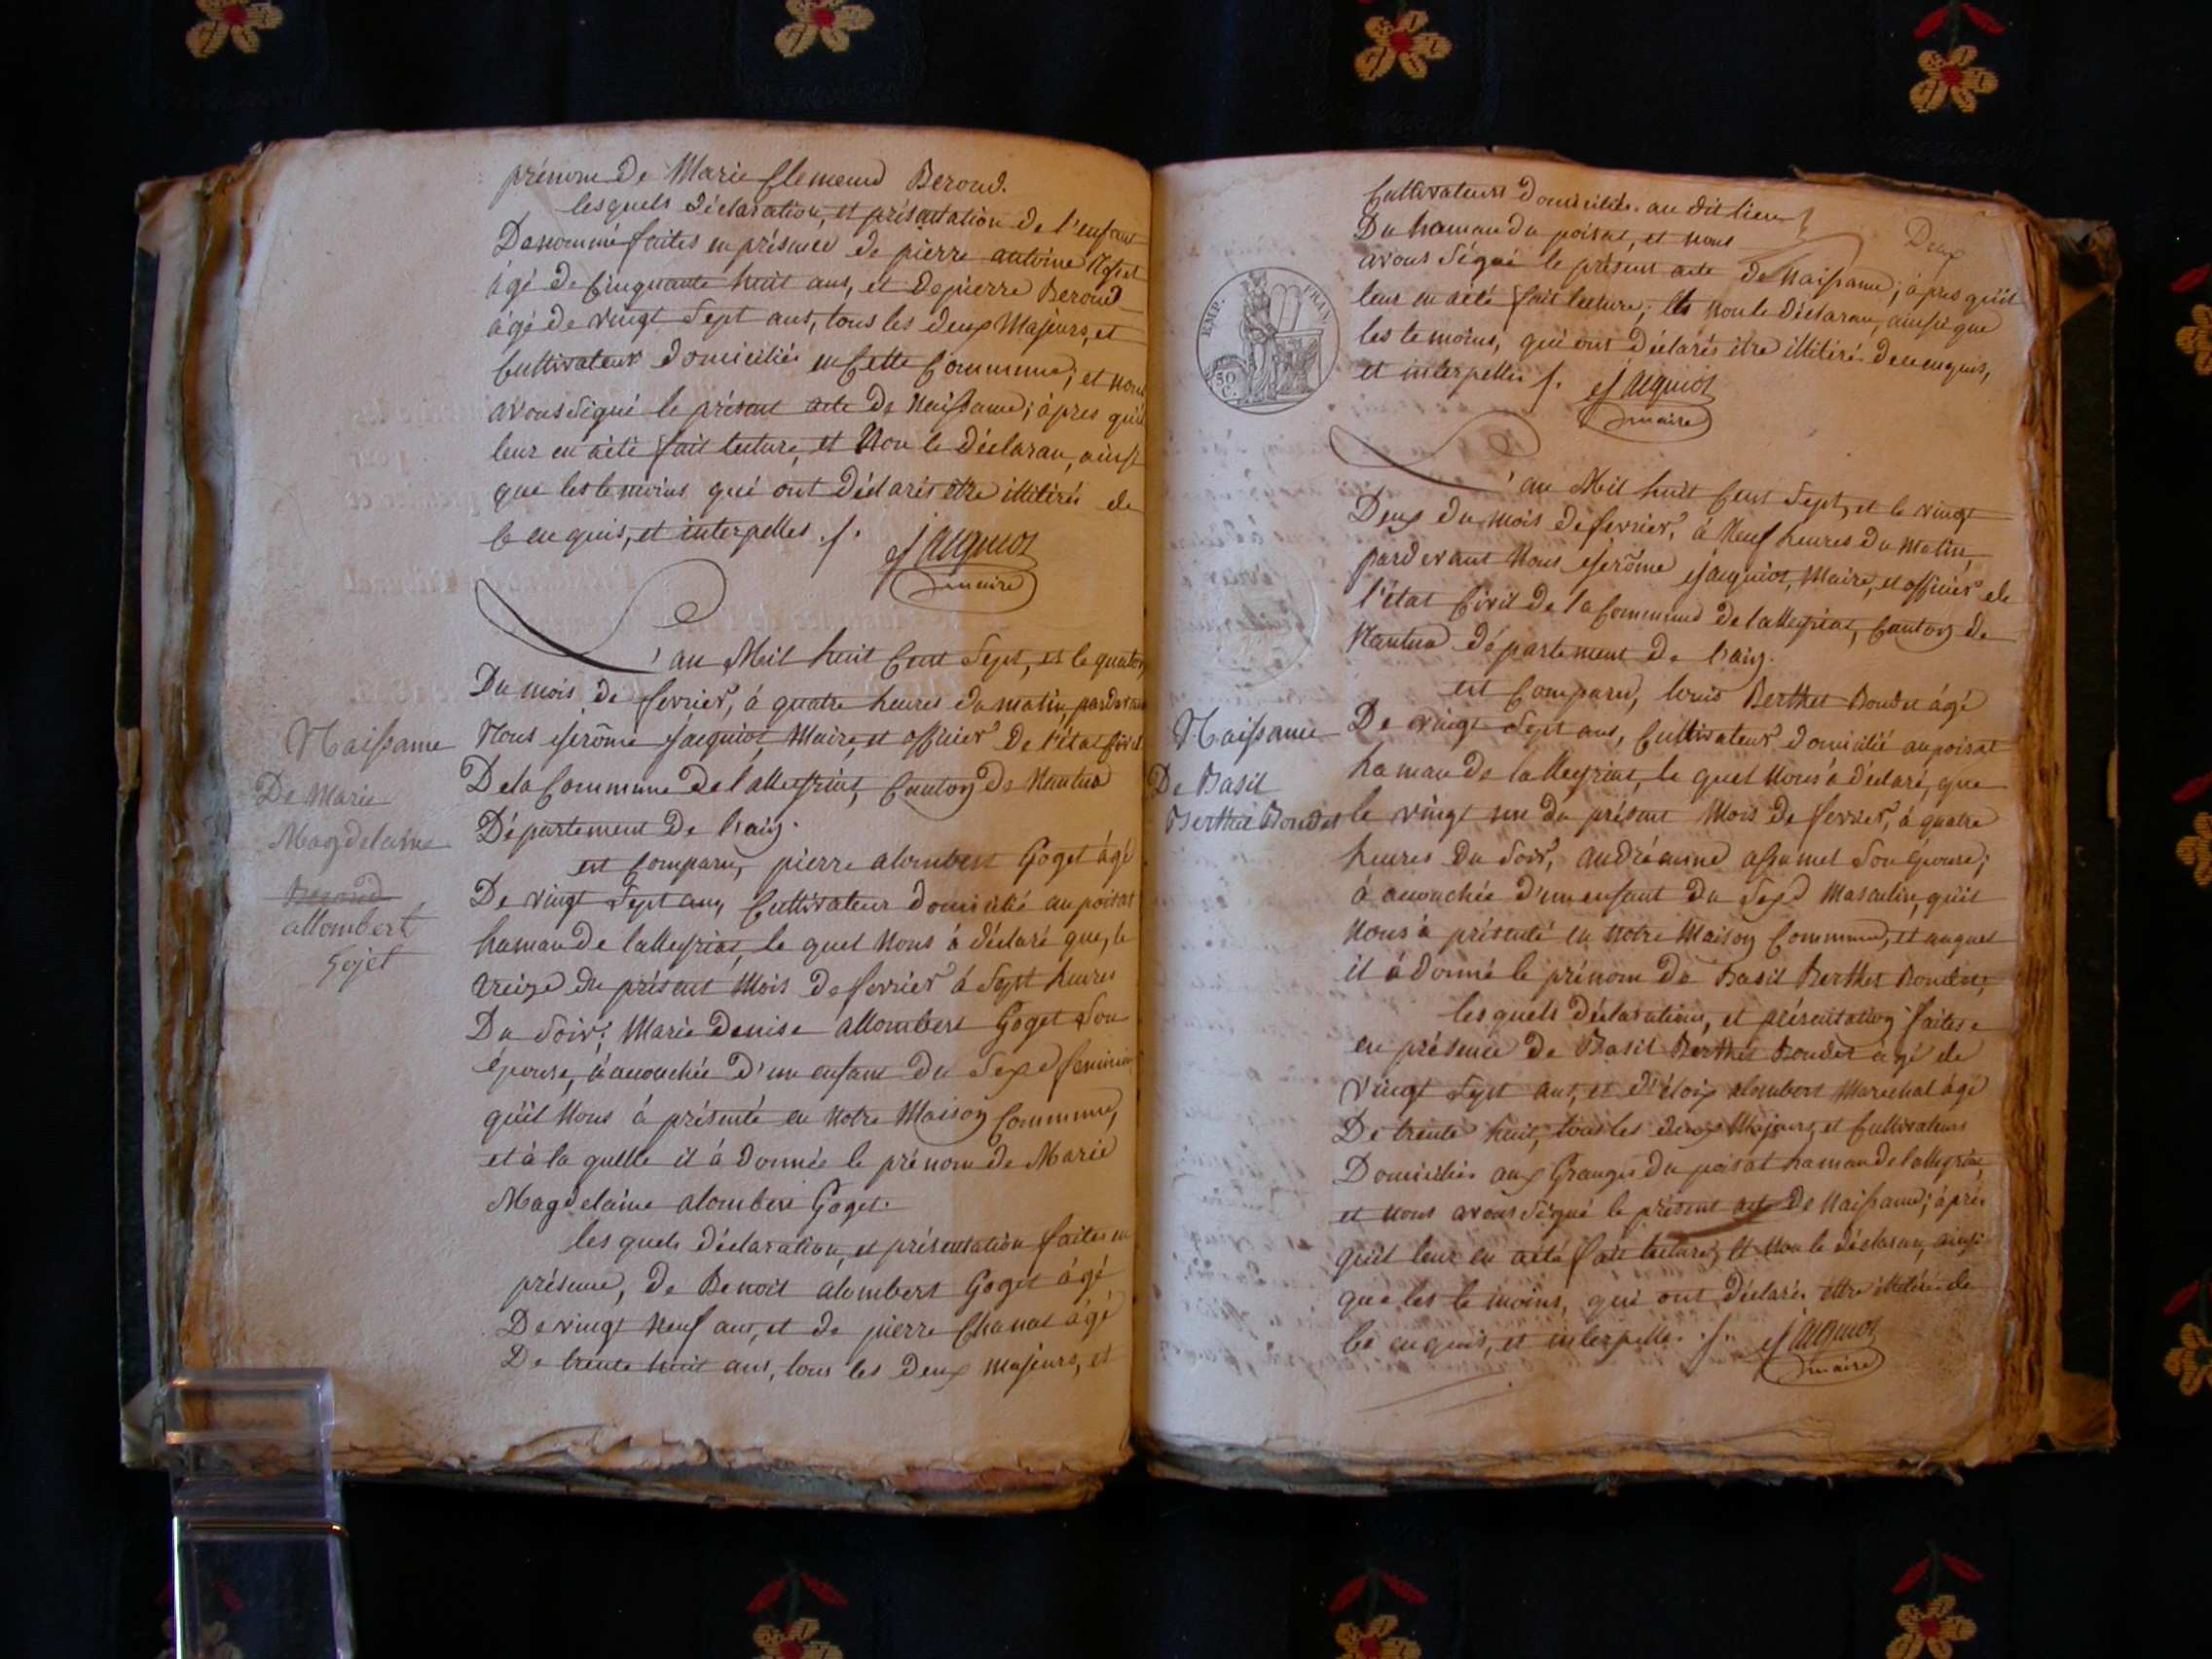 prénom de Marie Clemend Beroud.
lesquels déclaration, et présentation de l'enfant
Denommé faites en présence de pierre antoine
âgé de Cinquante huit ans, et de pierre Beroud
âgé de vingt Sept ans, tous les deux Majeurs, et
Cultivateur domiciliés en Cette Commune; et nous
avons signé le présent acte de Naissance; àpres qu'il
leur en àété fait lecture, et Non le Déclaran, ainsi
que les temoins qui ont Déclarés être illitirés de
Ce enquis, et interpelles ./.
Jacquiot
maire
L'an Mil huit Cent Sept, et le quatorze
Du mois de fevrier, à quatre heures du matin, pardevant
Nous Jerôme Jacquiot, Maire, et officier De l'état Civil
De la Commune de lalleyriat, Canton de Nantua
Département de L'ain.
Naissance
De Marie
Magdelaine
Beroud
allombert
Gojet
est Comparu, pierre alombert Goget âgé
De vingt Sept ans, Cultivateur domicilié au poisat
hamau de lalleyriat, le quel Nous à déclaré que, le
treize du présent Mois de fevrier à Sept heures
Du Soir; Marie Denise allombert Goget Son
épouse, à accouchée D'un enfant Du Sexe feminin
qu'il Nous à présenté en Notre Maison Commune,
et à la quelle il à donnée le prénom de Marie
Magdelaine alombert Goget.
les quels déclaration, et présentation faites en
présence, de Benoit alombert Goget âgé
De vingt Neuf ans, et de pierre Chanat âgé
De trente huit ans, tous les deux majeurs, et
Deux
Cultivateurs domiciliés au dit lieu
Du hamau du poisat, et nous
avons Signé le présent acte de Naissance; àpres qu'il
leur en àété fait lecture; et Non le Déclaran, ainsi que
les temoins, qui ont Déclarés être illitirés de ce enquis,
et interpellés ./. Jacquiot
maire
EMP. FRAN.
50 C.
L'an Mil huit Cent Sept, et le vingt
Deux du mois de fevrier, à Neuf heures du Matin,
pardevant Nous Jerôme Jacquiot, Maire, et officier de
l'état Civil De la Commune De lalleyriat, Canton de
Nantua Département de L'ain.
Naissance
De Basil
Berthet Boudet
est Comparu, louis Berthet Boudet âgé
De vingt Sept ans, Cultivateur domicilié au poisat
hamau de lalleyriat, le quel Nous à déclaré, que
le vingt un du présent Mois De fevrier, à quatre
heures Du Soir, andréanne assumel Son épouse;
à accouchée d'un enfant Du Sexe Masculin, qu'il
Nous à présenté en Notre Maison Commune, et auquel
il à Donné le prénom De Basil Berthet Boudet,
les quels déclarations, et présentation faites
en présence de Basil Berthet Boudet âgé de
vingt Sept ans, et d'éloix alombert Marechal âgé
De trente huit, tous les deux Majeurs, et Cultivateurs
Domiciliés aux Granges du poisat hamau de lalleyriat,
et nous avons Signé le présent acte De Naissance; àprés
qu'il leur en àété fait lecture, et Non le déclaran, ainsi
que les temoins, qui ont Déclarés être illitirés de
Ce enquis, et interpellés ./. Jacquiot
maire